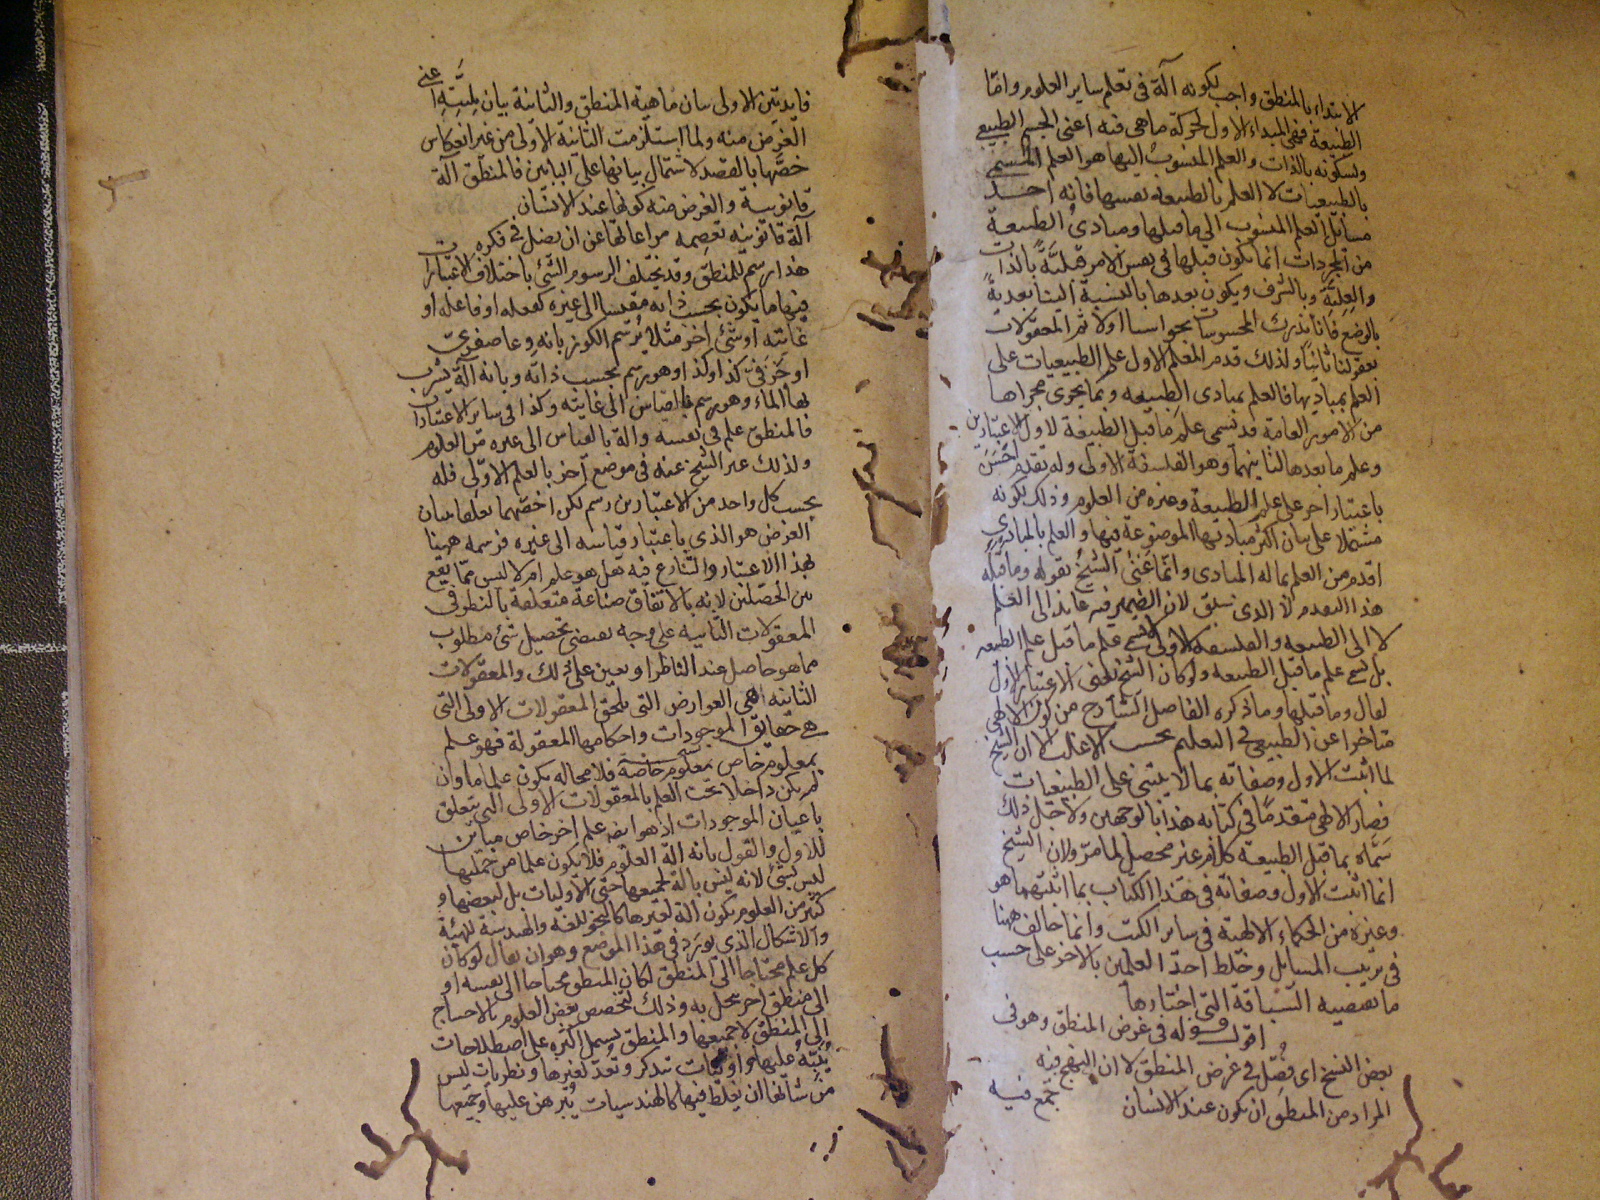 الابتداء بالمنطق واجب لكونه آلة في تعلم ساير العلوم وامّا
الطبيعة فهي المبداء الاول لحركة ما هي فيه اعني الجسم الطبيعي
ولسكونه بالذات والعلم المنسوب اليها هو العلم المسمى
بالطبيعيات لا العلم بالطبيعة نفسها فانه احد
مسايل العلم المنسوب الى ما قبلها ومبادئ الطبيعة
من المجردات انما تكون قبلها في نفس الامر قبليّةً بالذات
والعلية وبالشرف ويكون بعدها بالنسبة الينا بعدية
بالوضع فانا ندرك المحسوسات بحواسنا اولا ثم المعقولات
بعقولنا ثانيا ولذلك قدم المعلم الاول علم الطبيعيات على
العلم بمباديها فالعلم بمبادى الطبيعه وبما يجرى مجراها
من الامور العامة قد يسمى علم ما قبل الطبيعة لاول الاعتبارين
وعلم ما بعدها لثانيهما وهو الفلسفة الاولى وله تقدم آخر
باعتبار اخر على علم الطبيعة وغيره من العلوم وذلك لكونه
مشتملا على بيان اكثر مباديها الموضوعة فيها والعلم بالمبادى
اقدم من العلم بما له المبادى وانما عنى الشيخ بقوله وما قبله
هذا التقدم لا الذى سبق لان الضمير فيه عايد الى العلم
لا الى الطبيعه والفلسفه الاولى لا يسمى علم ما قبل علم الطبيعه
بل يسمى علم ما قبل الطبيعه ولو كان الشيخ يعنى الاعتبار الاول
لقال وما قبلها وما ذكره الفاضل الشارح من كون الالهي
متاخرا عن الطبيعي في التعليم بحسب الاغلب الا ان الشيخ
لما اثبت الاول وصفاته بما لا يبتنى على الطبيعيات
فصار الالهي متقدما في كتابه هذا بالوجهين ولاجل ذلك
سمّاه بما قبل الطبيعة كلام غير محصل لما مرّ ولان الشيخ
انما اثبت الاول وصفاته في هذا الكتاب بما اثبتهما هو
وغيره من الحكماء الالهية في ساير الكتب وانما خالف ههنا
في ترتيب المسايل وخلط احد العلمين بالاخر على حسب
ما تقتضيه السياقة التي اختارها
اقول قوله في غرض المنطق وهو في
بعض النسخ اى فصل في غرض المنطق لا ان النهج فيه
المراد من المنطق ان يكون عند الانسان
جمع فيه
فايدتين الاولى بيان ماهية المنطق والثانية بيان لميّته اعني
الغرض منه ولما استلزمت الثانية الاولى من غير انعكاس
خصّها بالقصد لاشتمال بيانها على البيانين فالمنطق آلة
قانونية والغرض منه كونها عند الانسان
آلة قانونيه تعصمه مراعاتها عن ان يضل في فكره
هذا رسم للمنطق وقد يختلف الرسوم الشئ باختلاف الاعتبارات
فمنها ما يكون بحسب ذاته مقيسا الى غيره كفعله او فاعله او
غايته او شئ اخر مثلا يرسم الكوز بانه وعا صفري
او خزفي كذا وكذا وهو رسم بحسب ذاته وبانه آلة يشرب
بها الماء وهو رسم بالقياس الى غايته وكذا في ساير الاعتبارات
فالمنطق علم في نفسه وآلة بالقياس الى غيره من العلوم
ولذلك عبر الشيخ عنه في موضع آخر بالعلم الاوّلي فله
بحسب كل واحد من الاعتبارين رسم لكن اخصهما تعلقا ببيان
الغرض هو الذي باعتبار قياسه الى غيره فرسمه ههنا
بهذا الاعتبار والتنازع فيه هل هو علم ام لا ليس مما يقع
بين المحصلين لانه بالاتفاق صناعة متعلقة بالنظر في
المعقولات الثانيه على وجه يقتضى تحصيل شئ مطلوب
مما هو حاصل عند الناظر او يعين على ذلك والمعقولات
الثانيه هي العوارض التي تلحق المعقولات الاولى التي
هي حقايق الموجودات واحكامها المعقولة فهو علم
بمعلوم خاص فلا محاله يكون علما ما وان
لم يكن داخلا تحت العلم بالمعقولات الاولى التي تتعلق
باعيان الموجودات اذ هو ايضا علم اخر خاص مباين
للاول والقول بانه آلة العلوم فلا يكون علما من جملتها
ليس بشئ لانه ليس بآلة لجميعها حتى الاوليات بل لبعضها و
كثير من العلوم يكون آلة لغيرها كالنحو للغة والهندسة للهيئة
والاشكال الذي يورد في هذا الموضع وهو ان يقال لو كان
كل علم محتاجا الى المنطق لكان المنطق محتاجا الى نفسه او
الى منطق اخر ينحل به وذلك لتخصص بعض العلوم بالاحتياج
الى المنطق لا جميعها والمنطق يشتمل اكثره على اصطلاحات
يُنبّه عليها واوليات تتذكر وتعدّ لغيرها ونظريات ليس
من شانها ان يغلط فيها كالهندسيات يُبرهن عليها وجميعها